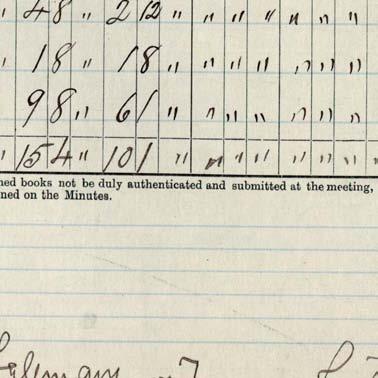 " 48 " 2 12 " " " " " " "
" 18 " 18 " " " " " " "
98 " 61 " " " " " " "
" 154 " 101 " " " " " " " "
ned books not be duly authenticated and submitted at the meeting,
ned on the Minutes.